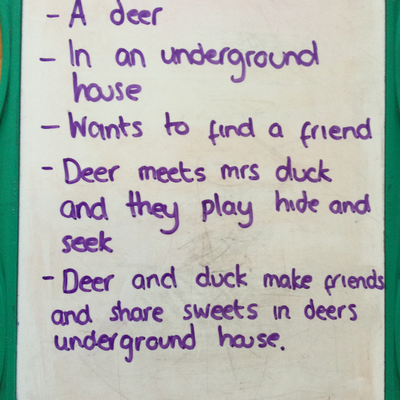 - A deer
- In an underground
house
- Wants to find a friend
- Deer meets mrs duck
and they play hide and
seek
- Deer and duck make friends
and share sweets in deers
underground house.